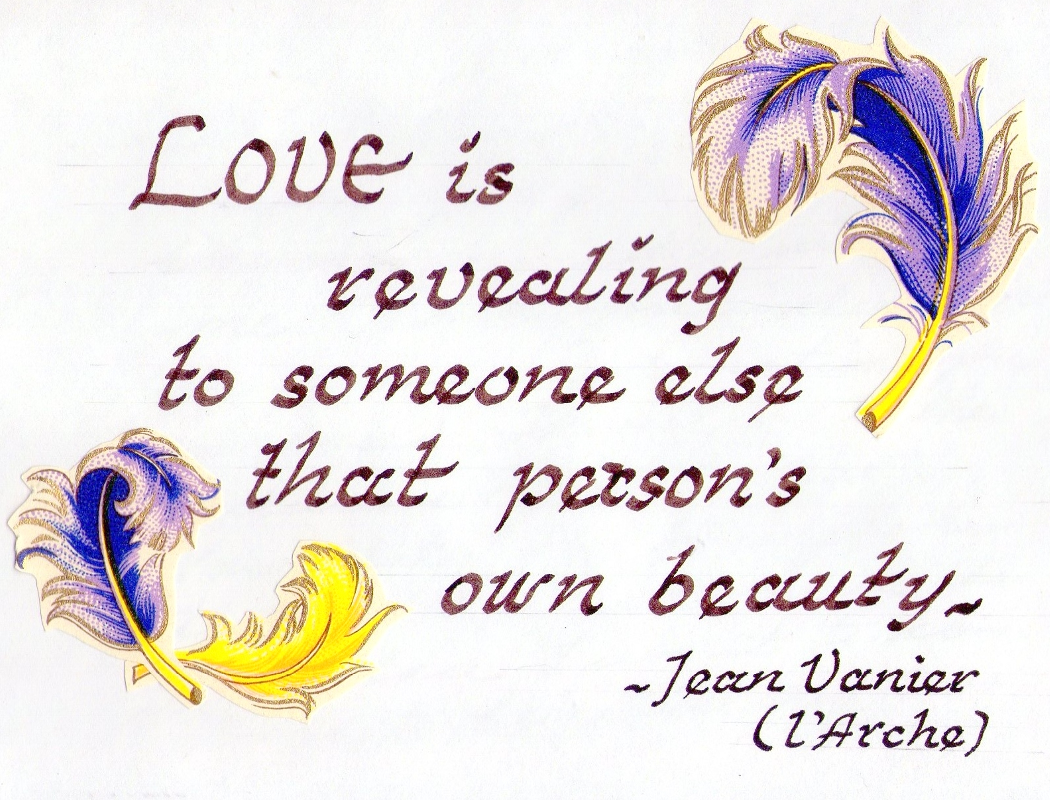 LOVE is
revealing
to someone else
that person's
own beauty~
~Jean Vanier
(l'Arche)